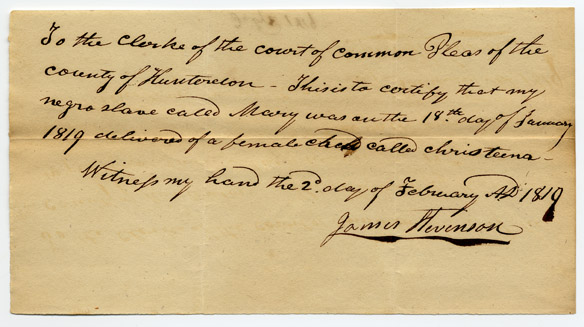 To the Clerke of the court of common Pleas of the
county of Hunterdon - This is to certify that my
negro slave called Mary was on the 18th day of January
1819 delivered of a female child called christeena -
Witness my hand the 2d. day of February AD 1819
James Stevenson